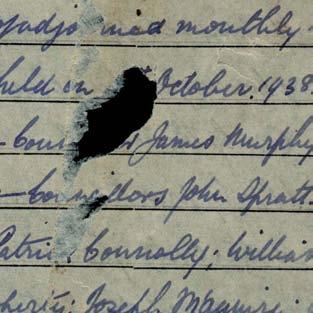 monthly
held on October. 1938.
James Murphy
Councillors John Spratt
Patric Connolly; William
Joseph Maguire;